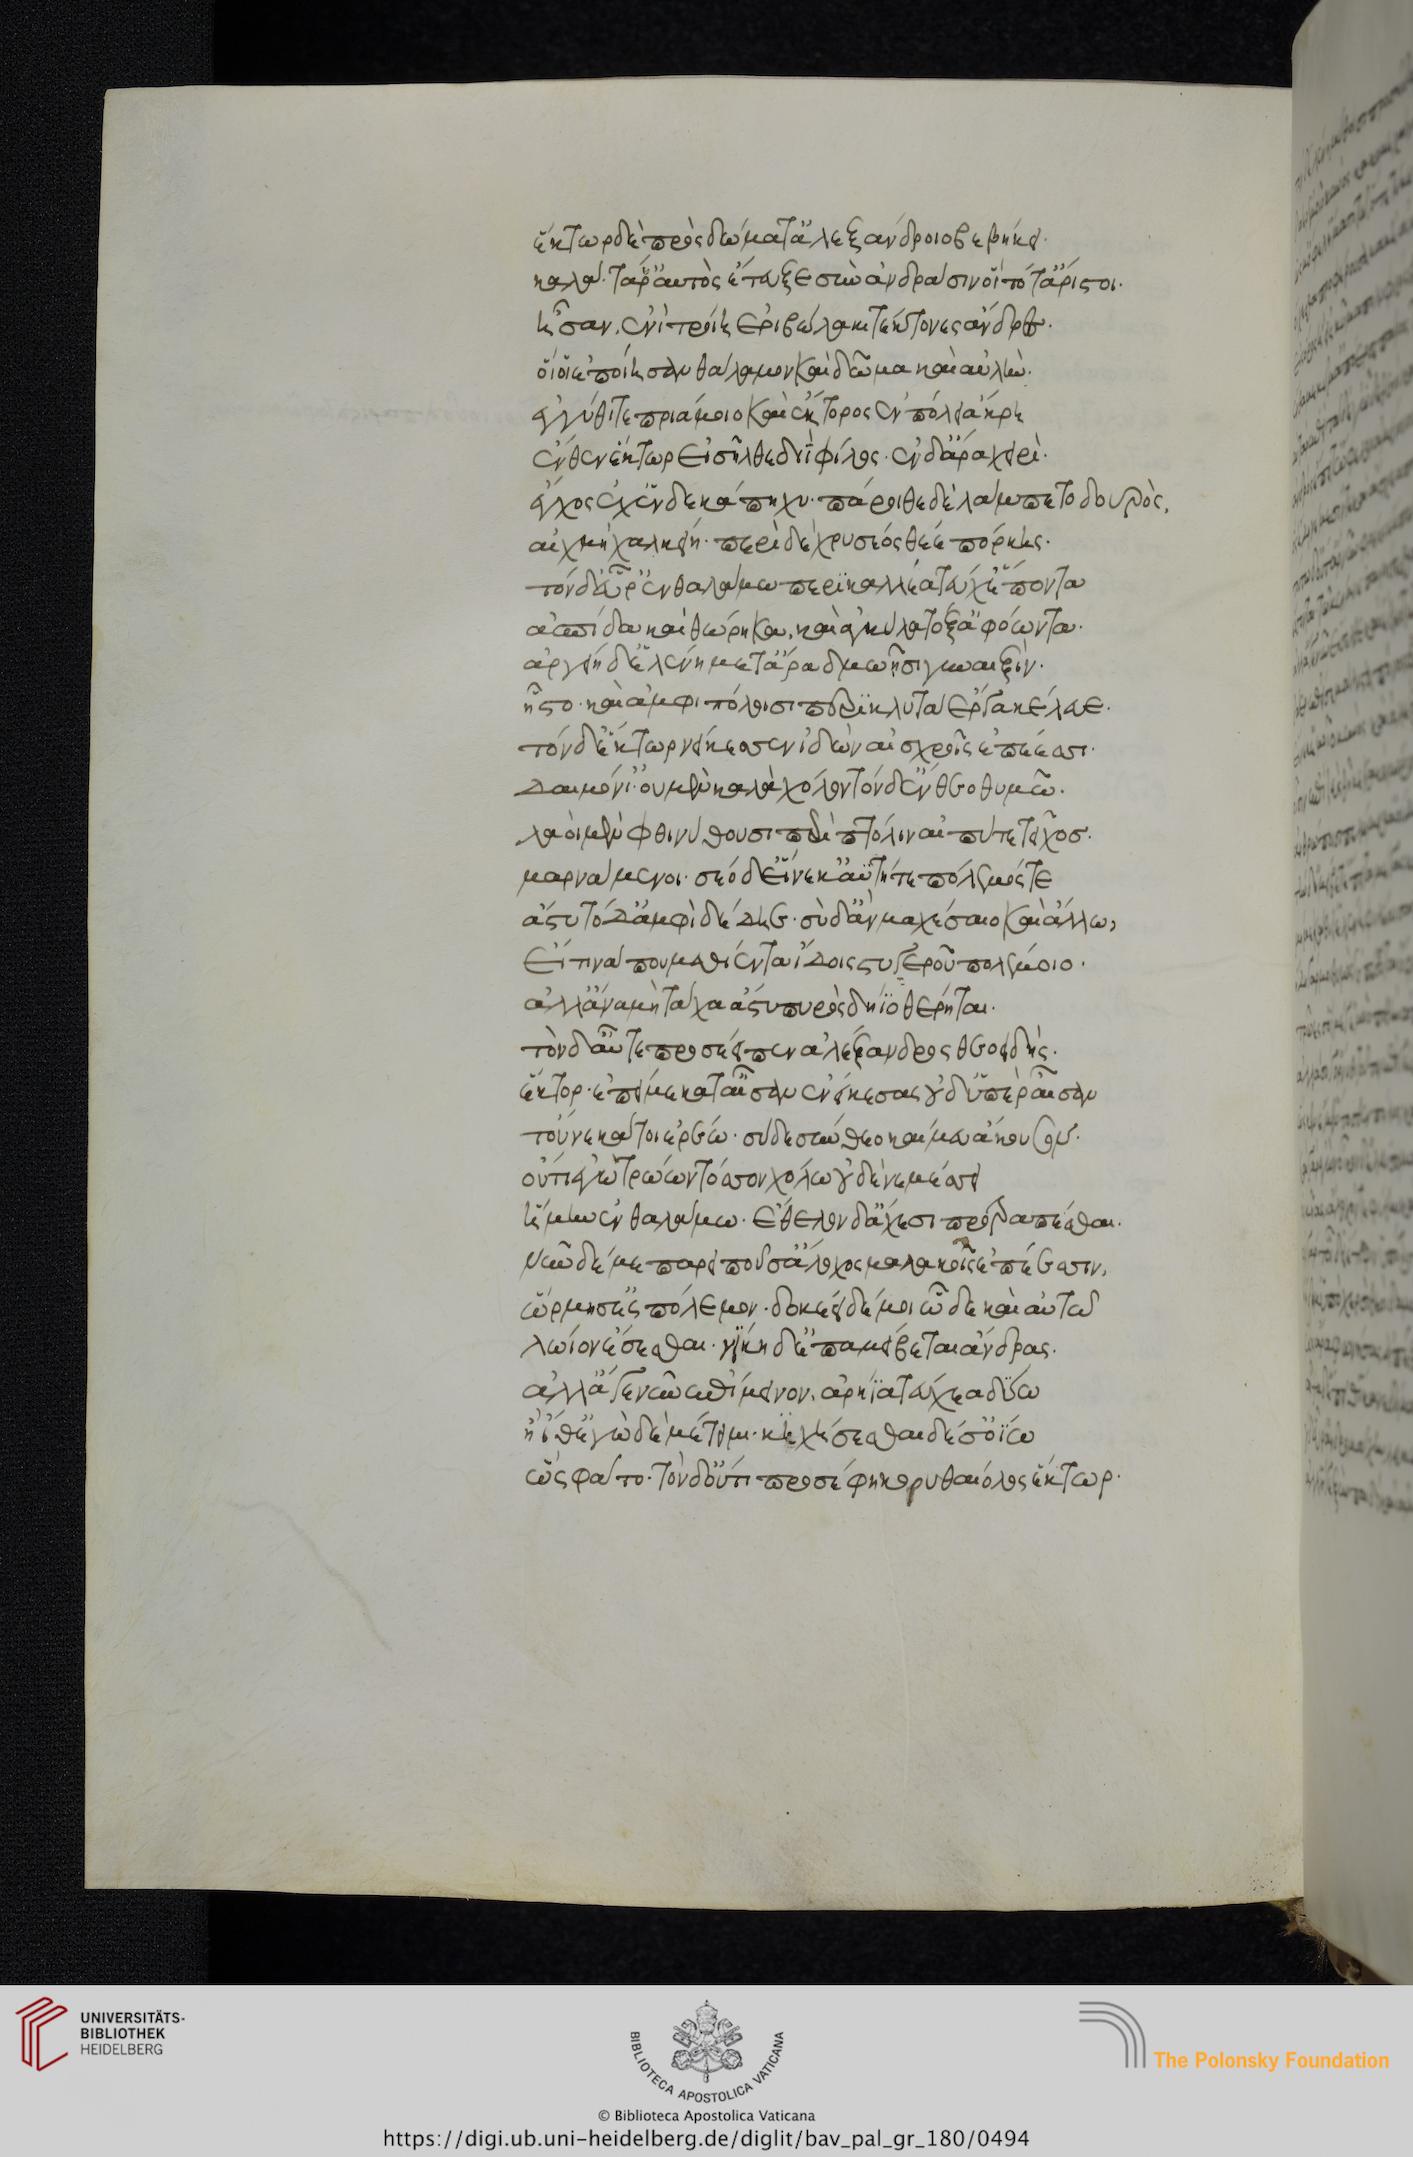 ἕκτωρ δὲ πρὸς δώματ' ἀλεξάνδροιο βεβήκει·
καλά· τά ῥ' αὐτὸς ἔτευξε σὺν ἀνδράσιν οἳ τότ' ἄριστοι·
ἦσαν, ἐνὶ τροίη ἐριβώλακι τέκτονες ἄνδρες·
οἵ οἱ ἐποίησαν θάλαμον καὶ δῶμα καὶ αὐλὴν·
ἐγγύθι τε πριάμοιο καὶ ἕκτορος ἐν πόλει ἄκρη
ἔνθεν ἕκτωρ εἰσῆλθε διῒ φίλος· ἐν δ' ἄρα χειρὶ·
ἔγχος ἔχ' ἑνδεκάπηχυ· πάροιθε δὲ λάμπετο δουρὸς,
αἰχμὴ χαλκείη· περὶ δὲ χρύσεος θέε πόρκης·
τὸν δ' εὗρ' ἐν θαλάμω περικαλλέα τεύχε' ἕποντα
ἀσπίδα καὶ θώρηκα, καὶ ἀγκύλα τόξ' ἀφόωντα·
ἀργείη δ' ἑλένη μετ' ἄρα δμωῆσι γυναιξὶν·
ἧστο· καὶ ἀμφιπόλοισι περικλυτὰ ἔργα κέλευε·
τὸν δ' ἕκτωρ νείκεσσεν ἰδὼν αἰσχροῖς ἐπέεσσι·
δαιμόνι' οὐ μὲν καλὰ χόλον τόνδ' ἔνθεο θυμῶ·
λαοὶ μὲν φθινύθουσι περὶ πτόλιν αἰπύ τε τεῖχος·
μαρνάμενοι· σέο δ' εἵνεκ' ἀϋτή τε πόλεμός τε
ἄστυ τόδ' ἀμφὶ δέδηε· σὺ δ' ἂν μαχέσαιο καὶ ἄλλω,
εἴ τινά που μεθιέντα ἴδοις στυγεροῦ πολέμοιο·
ἀλλ' ἄνα μὴ τάχα ἄστυ πυρὸς δηΐοιο θέρηται·
τὸν δ' αὖτε προσέειπεν ἀλέξανδρος θεοειδὴς·
ἕκτορ· ἐπεί με κατ' αἶσαν ἐνείκεσας οὐδ' ὑπὲρ αἶσαν
τοὔνεκά τοι ἐρέω· σὺ δὲ σύνθεο καί μευ ἄκουσον·
οὔτι ἐγὼ τρώων τόσσον χόλω οὐδὲ νεμέσσει
ἥμην ἐν θαλάμω· ἔθελον δ' ἄχεϊ προτραπέσθαι·
νῦν δέ με παρειποῦσ' ἄλοχος μαλακοῖς ἐπέεσσιν,
ὥρμησ' ἐς πόλεμον· δοκέει δέ μοι ὧδε καὶ αὐτῶ
λώϊον ἔσεσθαι· νίκη δ' ἐπαμείβεται ἄνδρας·
ἀλλ' ἄγε νῦν ἐπίμεινον, ἀρήϊα τεύχεα δύω
ἢ ἴθ' ἐγὼ δὲ μέτειμι· κιχήσεσθαι δέ σ' ὀΐω
ὣς φάτο· τὸν δ' οὔτι προσέφη κορυθαιόλος ἕκτωρ·
UNIVERSITÄTS-
BIBLIOTHEK
HEIDELBERG
BIBLIOTECA APOSTOLICA VATICANA
The Polonsky Foundation
© Biblioteca Apostolica Vaticana
https://digi.ub.uni-heidelberg.de/diglit/bav_pal_gr_180/0494